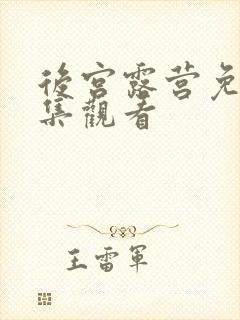 後宮露营免
集觀看
王雷軍